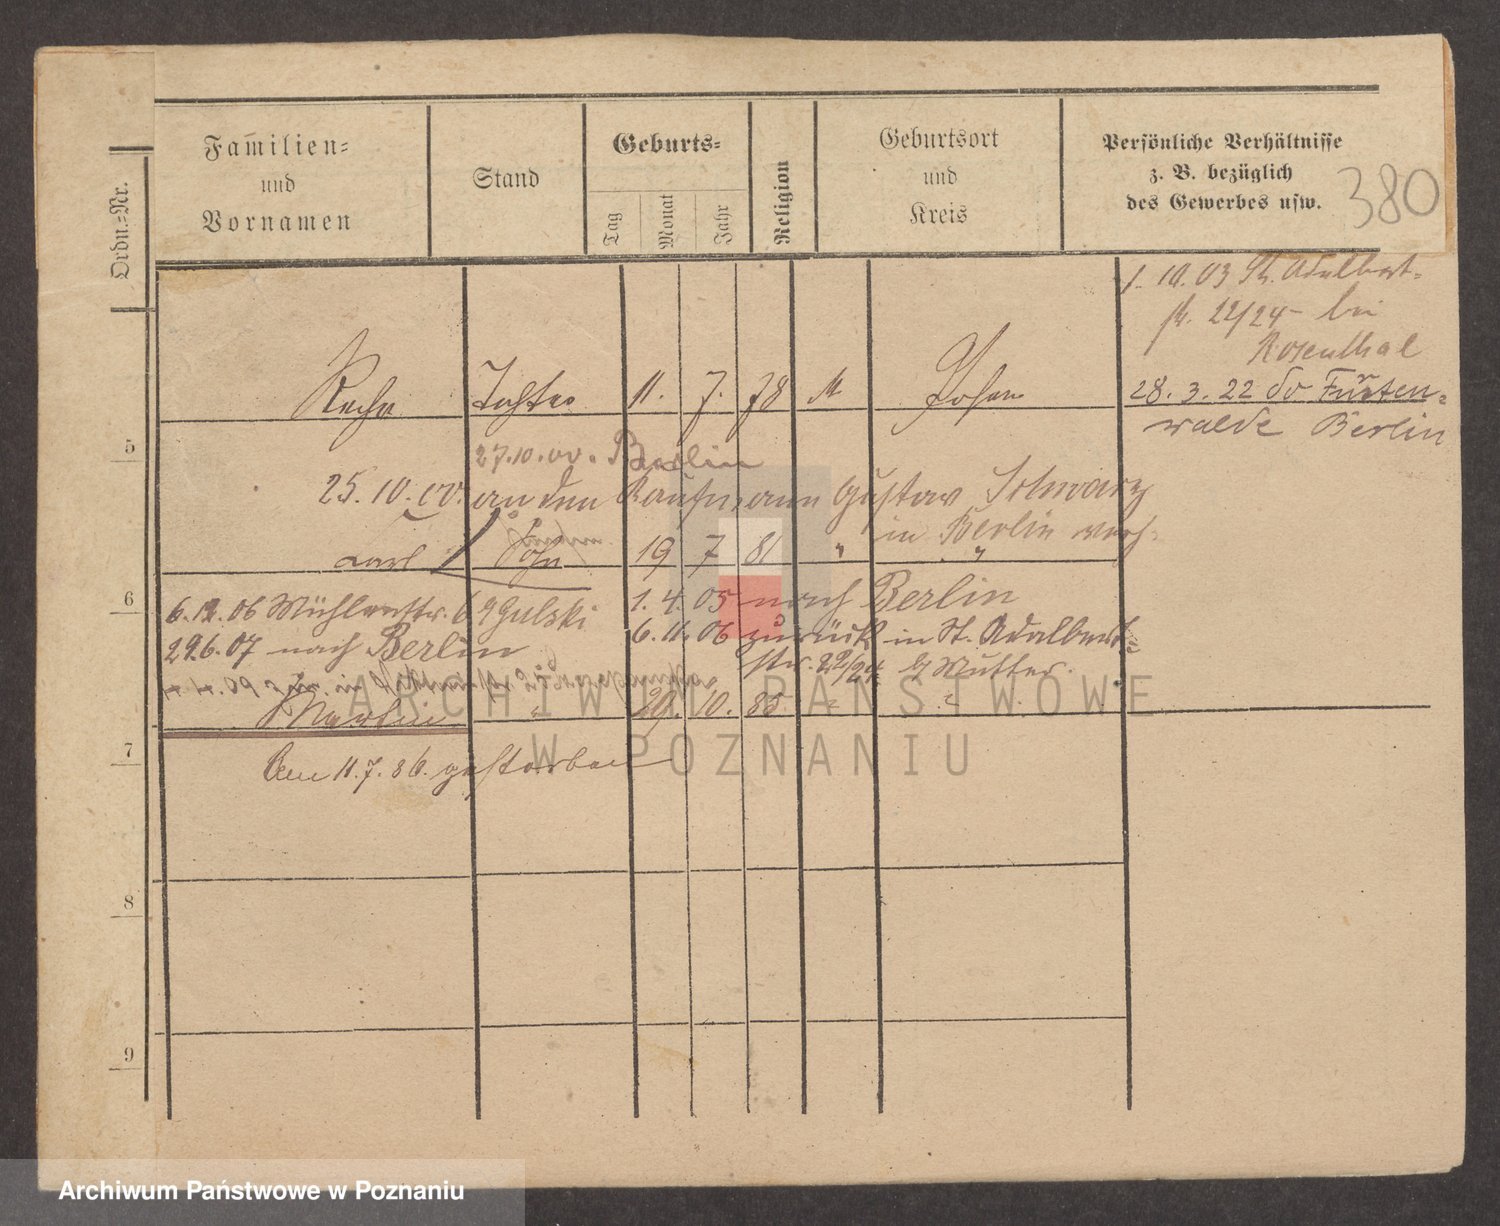 Ordn.-Nr.
Familien-
und
Vornamen
Stand
Geburts-
Tag
Monat
Jahr
Religion
Geburtsort
und
Kreis
Persönliche Verhältnisse
z. B. bezüglich
des Gewerbes usw.
380
1. 10. 03 St. Adalbert-
str. 22/24 bei
Rosenthal
Tochter 11. 7. 78 M Posen
28. 3. 22 do Fürsten-
walde Berlin
5
27.10.00. Berlin
25. 10. 00. an den Kaufmann Gustav Schwarz
in Berlin verh.
Carl Sohn 19 7 81 " "
6
6.12.06 Mühlenstr. 69 Gulski
1. 4. 05 nach Berlin
29.6.07 nach Berlin
6. 11. 06 zurück in St. Adalbert-
str. 22/24 b/ Mutter.
Martin " 29. 10. 85 " "
7
Am 11.7.86. gestorben
8
9
ARCHIWUM PAŃSTWOWE
W POZNANIU
Archiwum Państwowe w Poznaniu